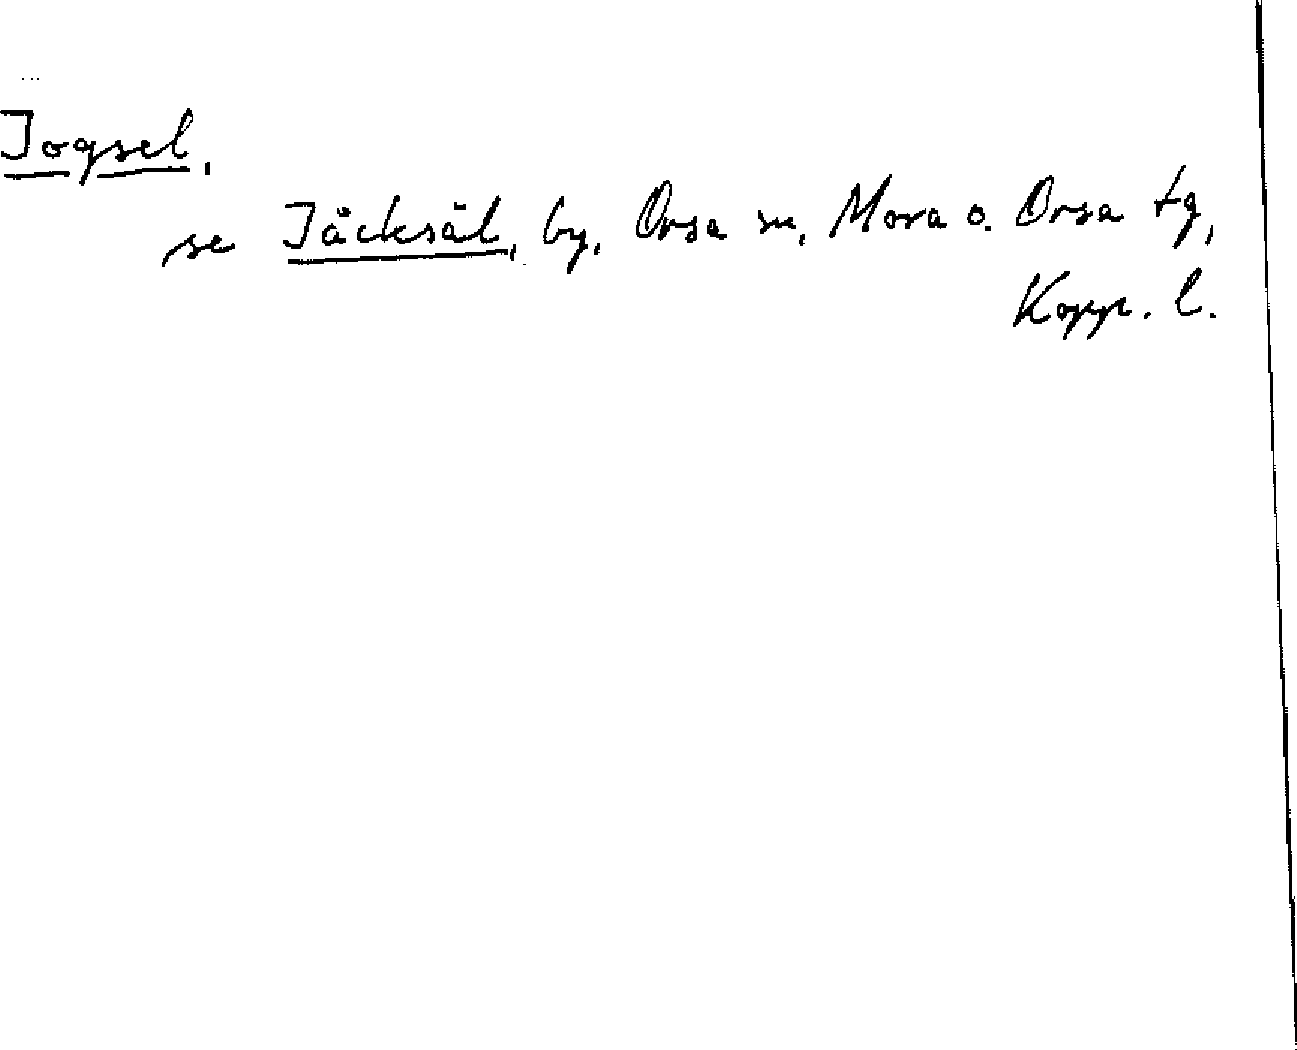 Jogsel,
se Jäcksäl, by, Orsa sn, Mora o. Orsa tg,
Kopp. l.